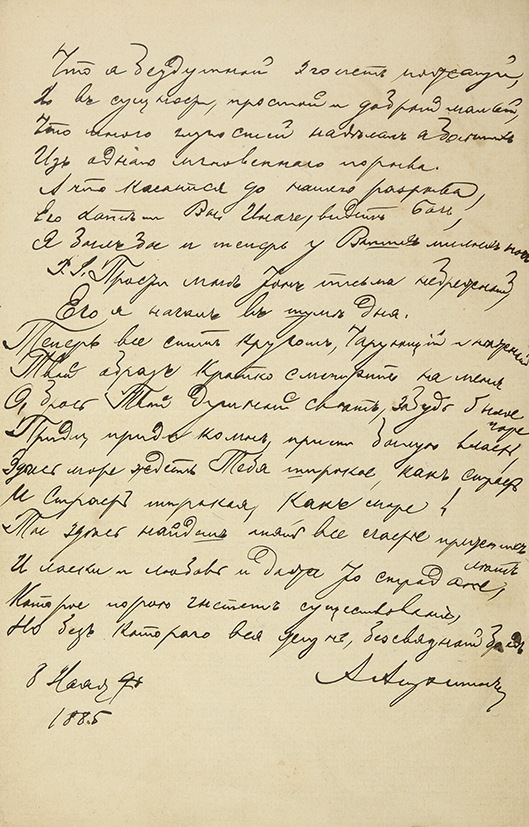 Что я бездушный эгоистъ, пожалуй,
Но въ сущности, простой и добрый малый,
Что много глупостей надѣлалъ я большихъ
Изъ одного мгновеннаго порыва.
А что касается до нашего разрыва,
Его хотѣли Вы. Иначе, видитъ Богъ,
Я былъ бы и теперь у Вашихъ милыхъ ногъ
P.S. Прости мнѣ тонъ письма небрежный,
Его я началъ въ шумѣ дня.
Теперь все спитъ кругомъ, Чарующій и нѣжный
Твой образъ кротко смотритъ на меня
О, брось Твой душный свѣтъ, забудь былое горе
Приди, приди ко мнѣ, прими былую власть,
Здѣсь море ждетъ Тебя широкое, какъ страсть
И страсть широкая, какъ море!
Ты здѣсь найдешь опять все счастье прежнихъ лѣтъ
И ласки и любовь и даже то страданье,
Которое порою гнететъ существованье,
Но безъ котораго вся жизнь, безсвязный бредъ
А Апухтинъ
8 Ноября
1885